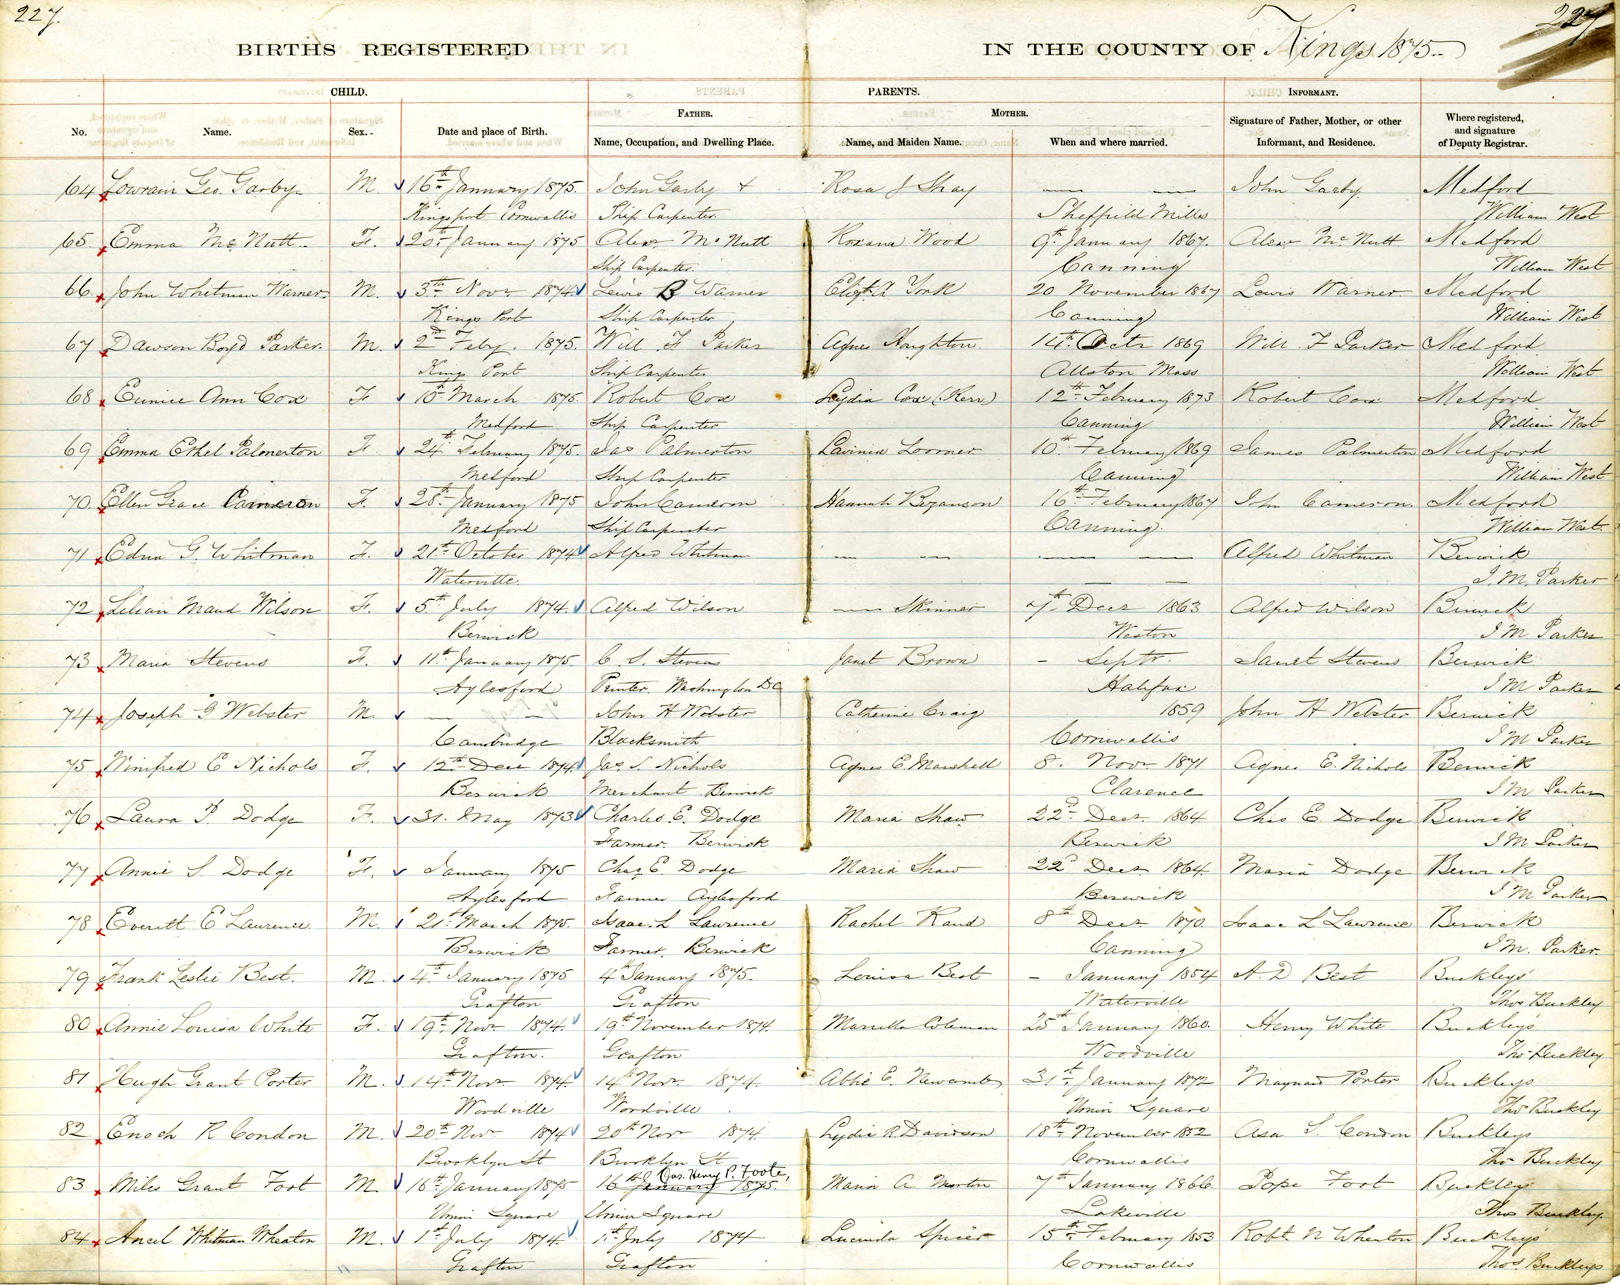 227.
227
BIRTHS REGISTERED IN THE COUNTY OF Kings 1875
CHILD. PARENTS. INFORMANT.
FATHER. MOTHER.
No. Name. Sex. Date and place of Birth. Name, Occupation, and Dwelling Place. Name, and Maiden Name. When and where married. Signature of Father, Mother, or other Informant, and Residence. Where registered, and signature of Deputy Registrar.
64 Lowrain Geo. Garby M. 16th January 1875. John Garby + Rosa J Shay — — John Garby Medford
Kingsport Cornwallis Ship Carpenter. Sheffield Mills William West
65 Emma McNutt F. 20th January 1875 Alexr McNutt Roxana Wood 9th January 1867. Alexr McNutt Medford
Ship Carpenter. Canning William West
66 John Whitman Warner. M. 3rd Novr 1874 Lewis B Warner York 20 November 1867 Lewis Warner. Medford
Kings Port Ship Carpenter Canning William West
67 Dawson Boyd Parker. M. 2nd Feby. 1875. Will F Parker Agnes Houghton 14th Octr 1869 Will. F Parker Medford
Kings Port Ship Carpenter Allston Mass William West
68 Eunice Ann Cox F 10th March 1875. Robert Cox Lydia Cox (Kerr) 12th February 1873 Robert Cox Medford
Medford Ship Carpenter Canning William West
69 Emma Ethel Palmerton F. 24th February 1875. Jas Palmerton Lavinia Loomer 10th February 1869 James Palmerton Medford
Medford Ship Carpenter Canning William West
70. Ellen Grace Cameron F. 28th January 1875 John Cameron Hannah Bezanson 16th February 1867 John Cameron. Medford
Medford Ship Carpenter Canning. William West
71 Edna G. Whitman F. 21st October 1874 Alfred Whitman — — — — Alfred Whitman Berwick
Waterville. — — I. M. Parker
72 Lilian Maud Wilson F. 5th July 1874. Alfred Wilson — Skinner 7th Decr 1863 Alfred Wilson Berwick
Berwick Weston I M Parker
73 Maria Stevens F. 11th January 1875. C. S. Stevens Janet Brown - Septr. Janet Stevens Berwick
Aylesford Printer. Washington DC Halifax I M Parker
74 Joseph G Webster M. — — John H Webster Catherine Craig 1859 John H Webster Berwick
Cambridge Blacksmith Cornwallis I M Parker
75 Winifred E Nichols F. 12th Decr 1874. Jas. S. Nichols Agnes E. Marshall 8. Novr 1871 Agnes E. Nichols Berwick
Berwick Merchant Berwick Clarence I M Parker
76 Laura P. Dodge F. 31. May 1873 Charles E. Dodge Maria Shaw 22nd Decr 1864 Chas E. Dodge Berwick
Farmer. Berwick Berwick I M Parker
77 Annie S. Dodge F. January 1875 Chas E. Dodge Maria Shaw 22nd Decr 1864 Maria Dodge Berwick
Aylesford Farmer Aylesford Berwick I M Parker
78 Everett E Lawrence M. 21st March 1875. Isaac L Lawrence Rachel Rand 8th Decr 1870. Isaac L Lawrence Berwick
Berwick Farmer. Berwick Canning I M. Parker.
79 Frank Leslie Best. M. 4th January 1875 4th January 1875. Louisa Best - January 1854 A. D Best Buckleys
Grafton Grafton Waterville Thos Buckley
80 Annie Louisa White F. 19th Novr 1874. 19th November 1874. Marietta Coleman 25th January 1860. Henry White Buckley's
Grafton. Grafton Woodville Thos Buckley
81 Hugh Grant Porter M. 14th Novr 1874 14th Novr. 1874. Abbie E. Newcomb 31st January 1872 Maynard Porter Buckleys
Woodville Woodville Union Square Thos Buckley
82 Enoch R Condon M. 20th Nov. 1874 20th Novr 1874 Lydia R Davidson 18th November 1852 Asa S. Condon Buckleys
Brooklyn St Brooklyn St Cornwallis Thos Buckley
Jas. Henry P. Foote,
83 Miles Grant Foot M. 16th January 1875 16th January 1875. Maria A. Morton 7th January 1866. Pope Foot Buckleys
Union Square Union Square Lakeville Thos Buckley
84 Ansel Whitman Wheaton M. 1st July 1874. 1st July 1874 Lucinda Spicer 15th February 1853 Robt. N Wheaton Buckleys
Grafton Grafton Cornwallis Thos. Buckleys